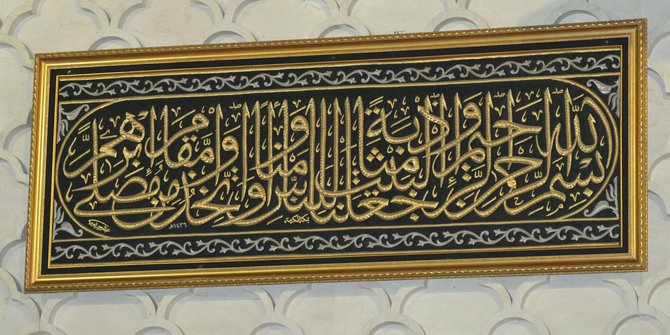 بسم الله الرحمن الرحيم وإذ جعلنا البيت مثابة للناس وأمنا واتخذوا من مقام إبراهيم مصلى
١٤٣٦هـ